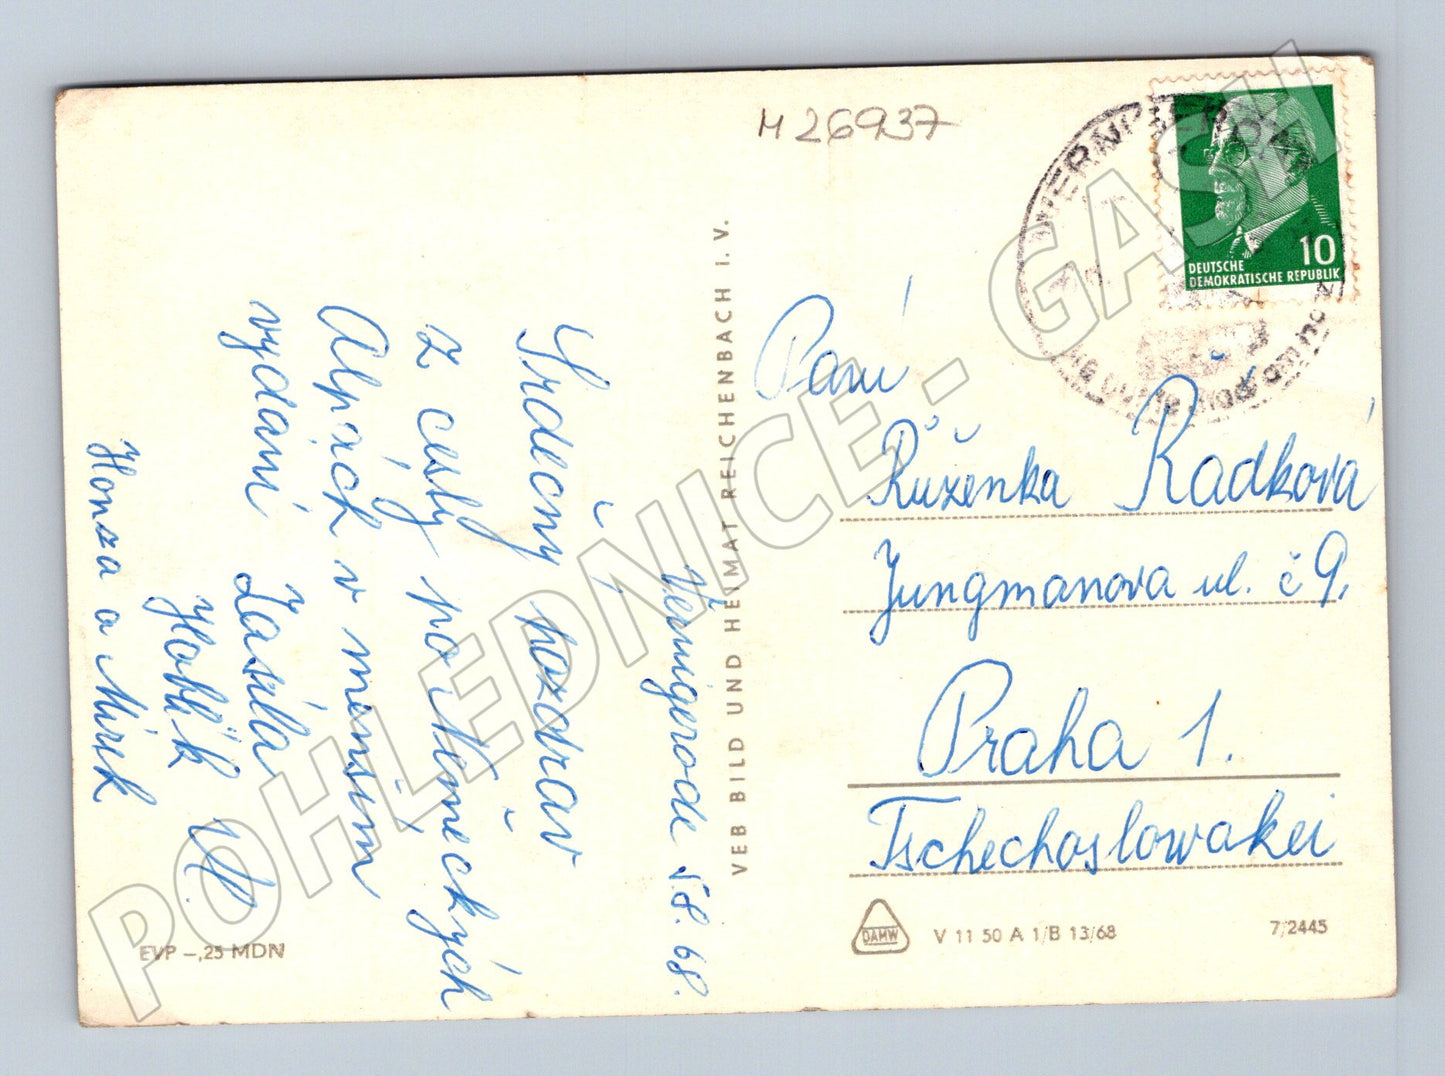 M 26937
WERNIGERODE
10
DEUTSCHE
DEMOKRATISCHE REPUBLIK
Wernigerode 5.8.68.
Srdečný pozdrav
z cesty po Německých
Alpách v menším
vydání Zasílá
Honza a Mirek
Paní
Růženka Radková
Jungmanova ul. č 9.
Praha 1.
Tschechoslowakei
VEB BILD UND HEIMAT REICHENBACH I. V.
EVP -,25 MDN
DAMW
V 11 50 A 1/B 13/68
7/2445
POHLEDNICE - GASH